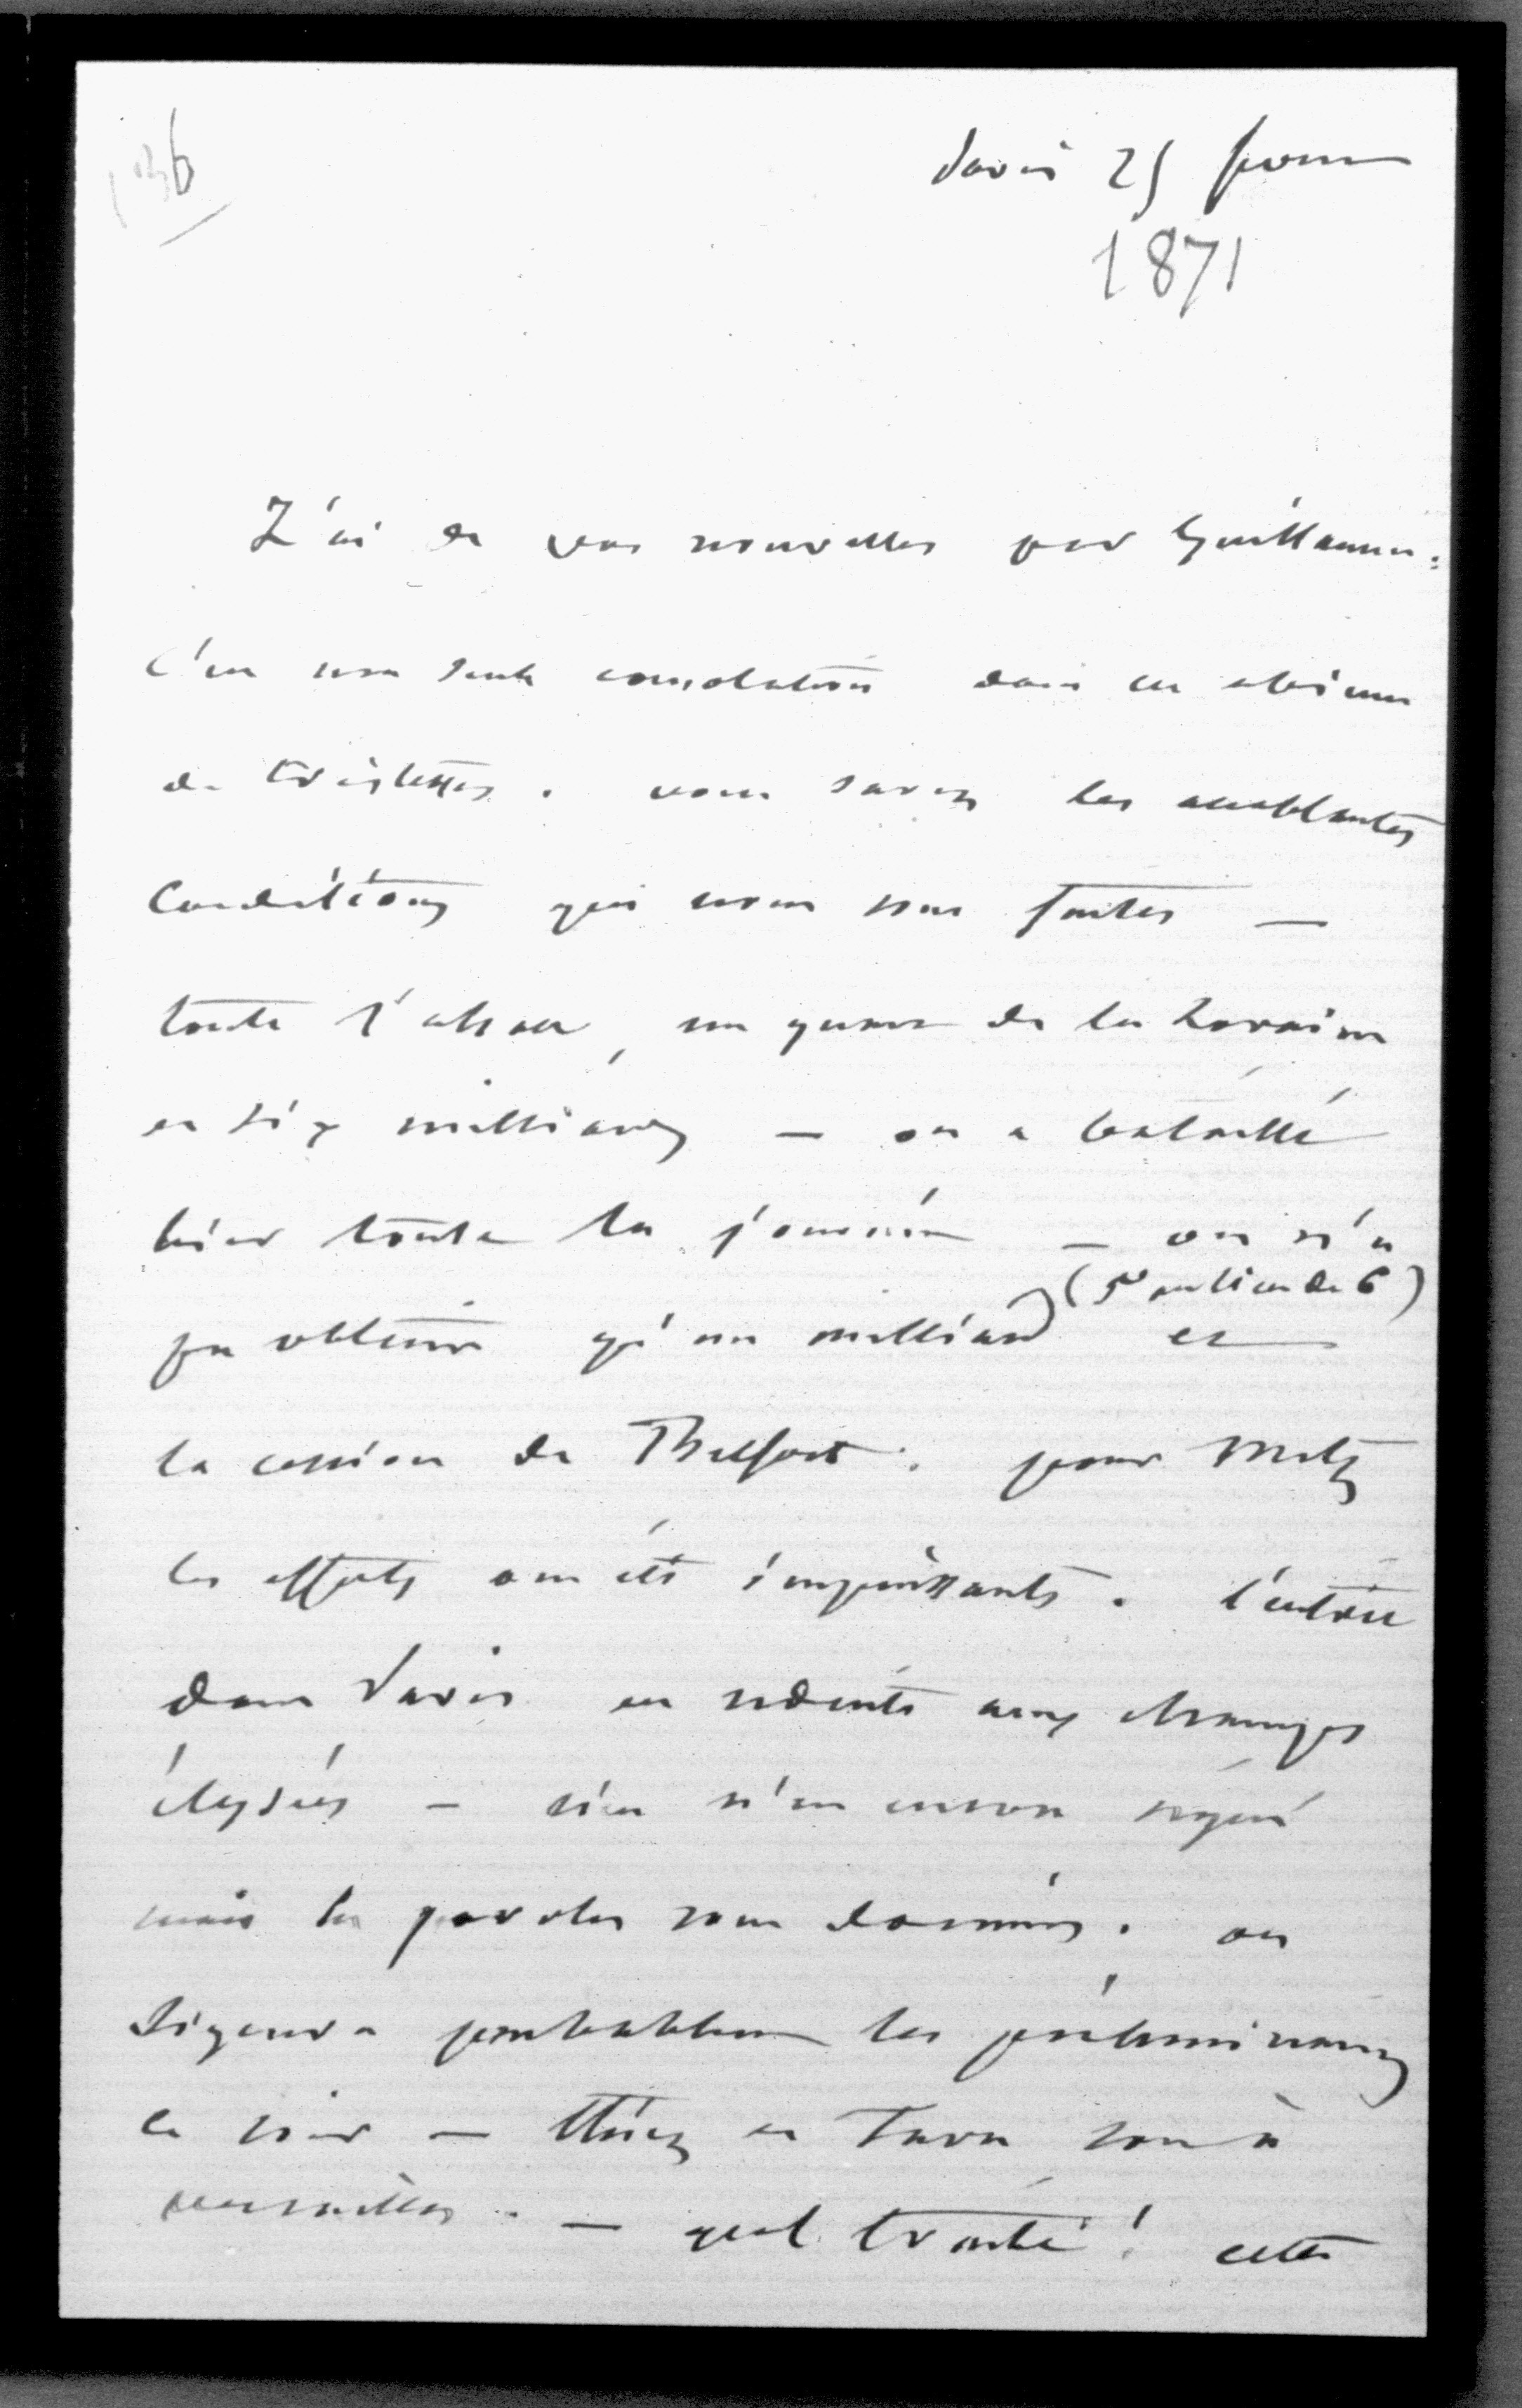 136
Paris 25 fevrier
1871
J'ai de vos nouvelles par Guillaume :
c'est ma seule consolation dans cet abime
de tristesses. vous savez les accablantes
conditions qui nous sont faites —
toute l'alsace, un quart de la Lorraine
et six milliards — on a bataillé
hier toute la journée — on n'a
(5 au lieu de 6)
pu obtenir qu'un milliard et
la cession de Belfort. pour Metz
les efforts ont été impuissants. l'entrée
dans Paris est réduite aux champs
élysées — rien n'est encore signé
mais les paroles sont données. on
signera probablement les préliminaires
ce soir — Thiers et Favre sont à
versailles. — quel traité ! cette